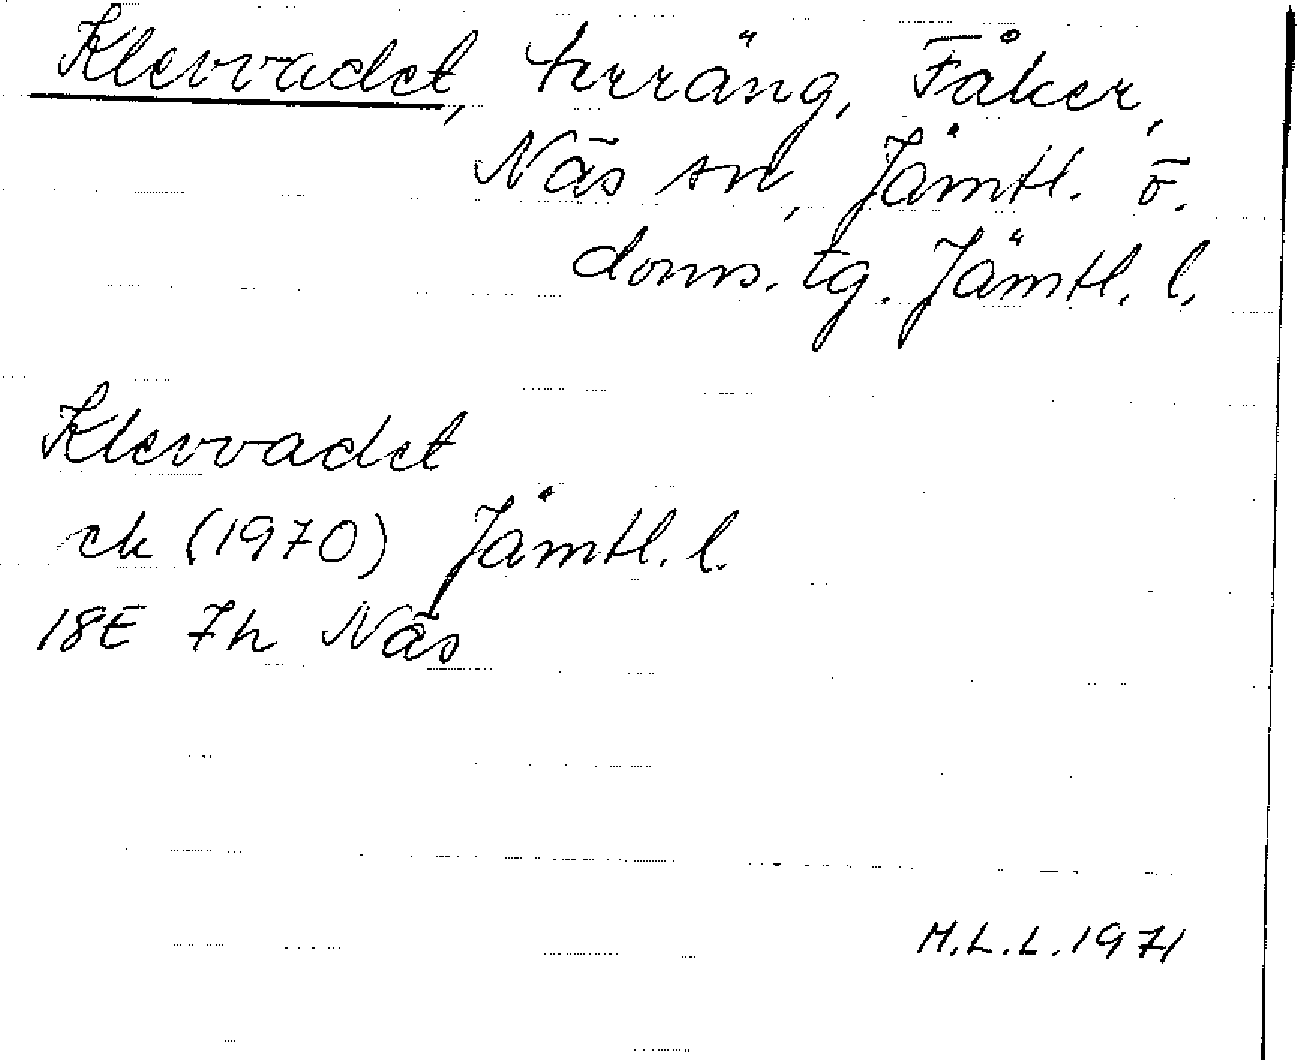 Klevvadet, terräng, Fåker,
Näs sn, Jämtl. ö.
doms. tg. Jämtl. l.
Klevvadet
ek (1970) Jämtl. l.
18E 7h Näs
M.L.L. 1971